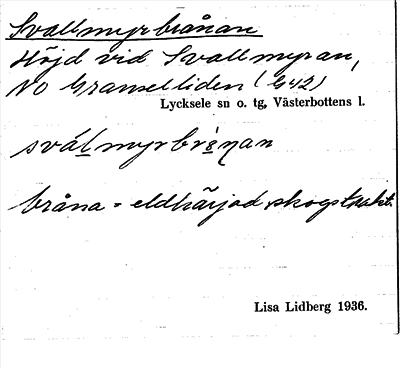 Svallmyrbrånan
Höjd vid Svallmyran,
NO Granselliden (G42)
Lycksele sn o. tg, Västerbottens l.
svál myrbrånan
bråna = eldhärjad skogstrakt.
Lisa Lidberg 1936.